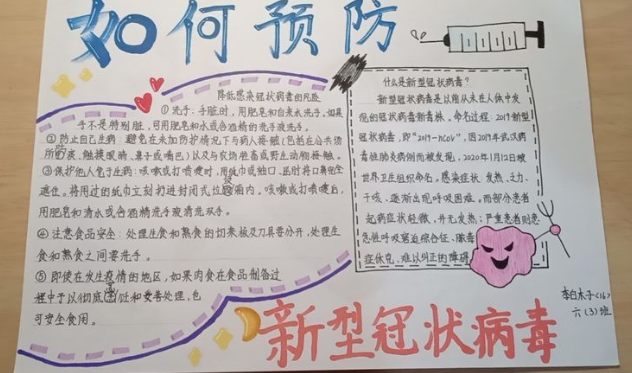 如何预防
降低感染冠状病毒的风险
①洗手：手脏时，用肥皂和自来水洗手。如果
手不是特别脏，可用肥皂和水或含酒精的洗手液洗手。
②防止自己生病：避免在未加防护情况下与病人接触(包括在公共场
所，触摸眼睛、鼻子或嘴巴)以及与农场牲畜或野生动物接触。
③保护他人免于生病：咳嗽或打喷嚏时，用纸巾或袖口、屈肘将口鼻完全
遮住。将用过的纸巾立刻扔进封闭式垃圾桶内。咳嗽或打喷嚏后，
用肥皂和清水或含酒精洗手液清洗双手。
④注意食品安全：处理生食和熟食的切菜板及刀具要分开，处理生
食和熟食之间要洗手。
⑤即使在发生疫情的地区，如果肉食在食品制备过
程中予以彻底和妥善处理，也
可安全食用。
什么是新型冠状病毒？
新型冠状病毒是以前从未在人体中发
现的冠状病毒新毒株。命名过程：2019新型
冠状病毒，即"2019-nCoV"，因2019年武汉病
毒性肺炎病例而被发现，2020年1月12日被
世界卫生组织命名。感染症状：发热、乏力、
干咳、逐渐出现呼吸困难，而部分患者
起病症状轻微，并无发热；严重患者则患
急性呼吸窘迫综合征、脓毒
症休克、难以纠正的障碍
李白木子(16)
六(3)班
新型冠状病毒